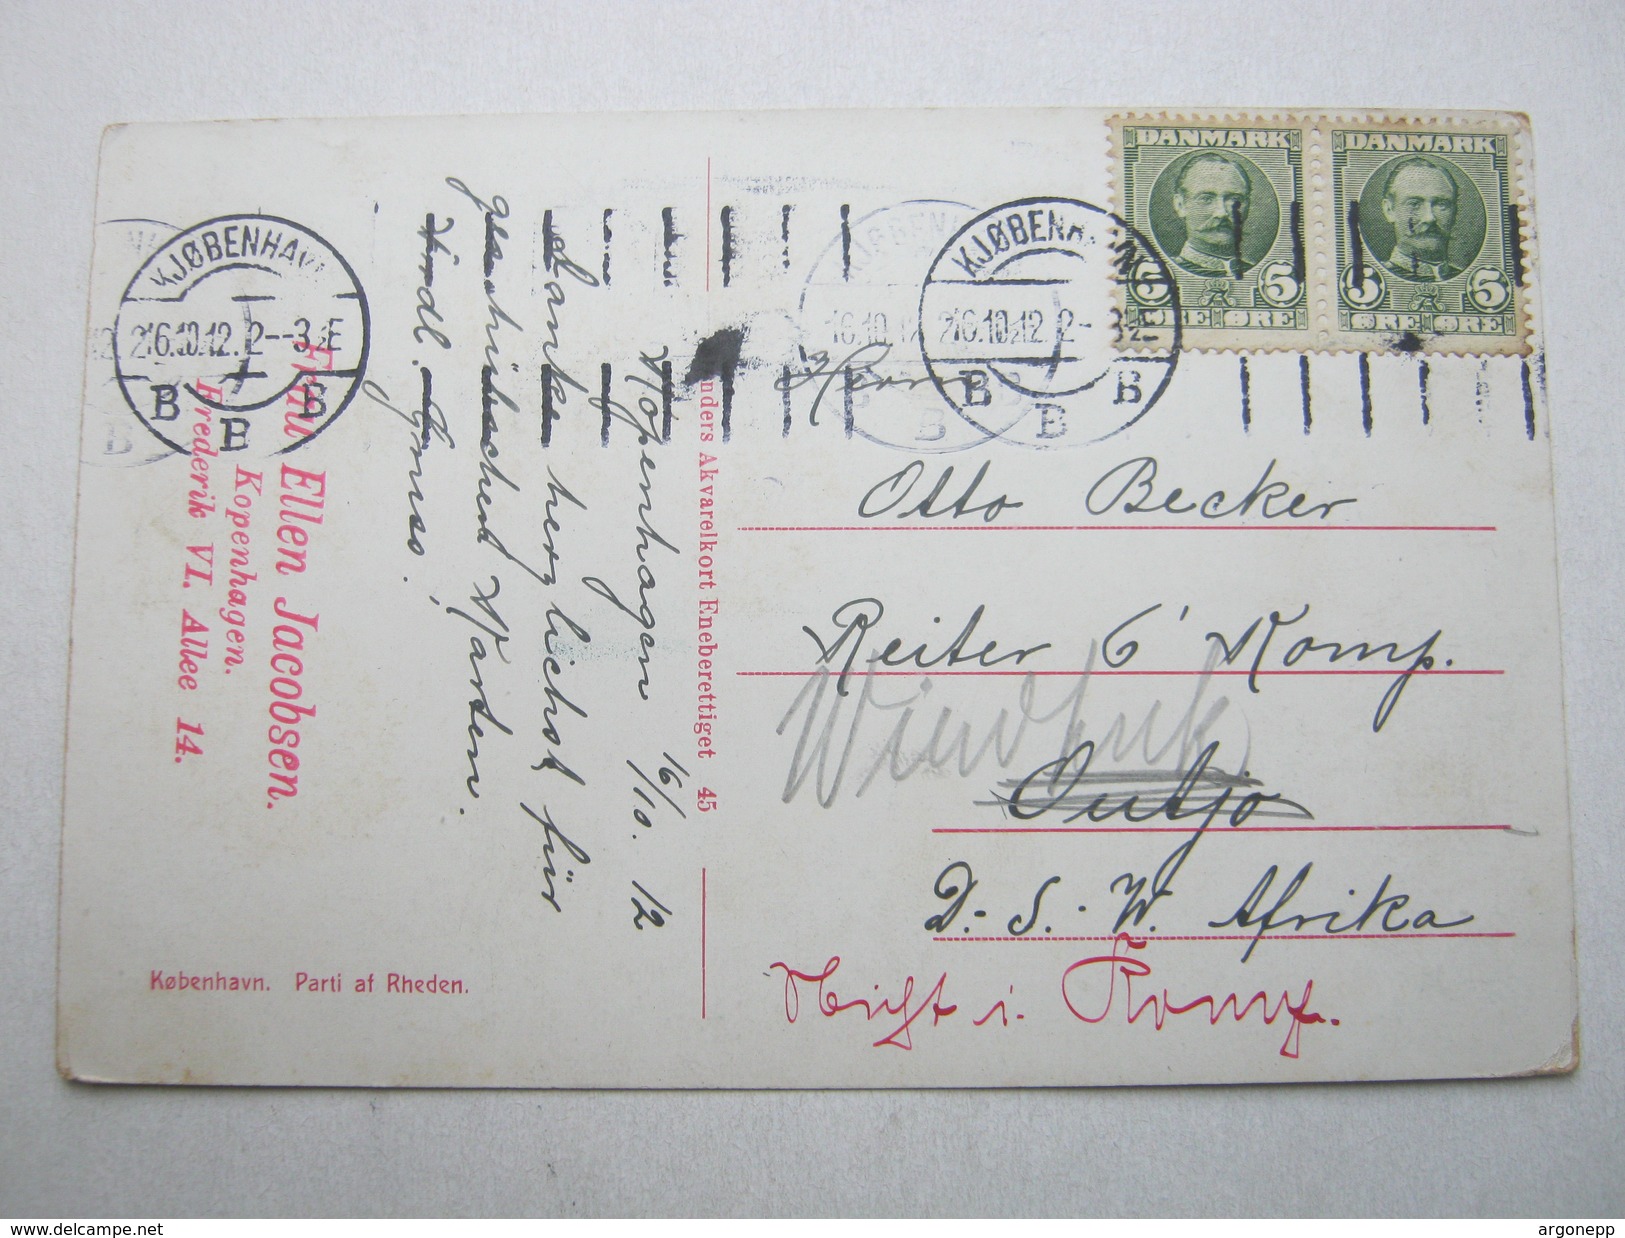 DANMARK
5 5
ØRE ØRE
DANMARK
5 5
ØRE ØRE
KJØBENHAVN
16.10.12. 2--3 E
B B
B
KJØBENHAVN
16.10.12. 2--3 E
B B
B
Frau Ellen Jacobsen.
Kopenhagen.
Frederik VI. Allee 14.
Kopenhagen 16/10. 12
Danke herzlichst für
geschriebenen Karten.
Frdl. Gruss!
København. Parti af Rheden.
nders Akvarelkort Eneberettiget 45
Herrn
Otto Becker
Reiter 6' Komp.
Windhuk
Outjo
D. S. W. Afrika
Nicht i. Komp.
delcampe.net
argonepp